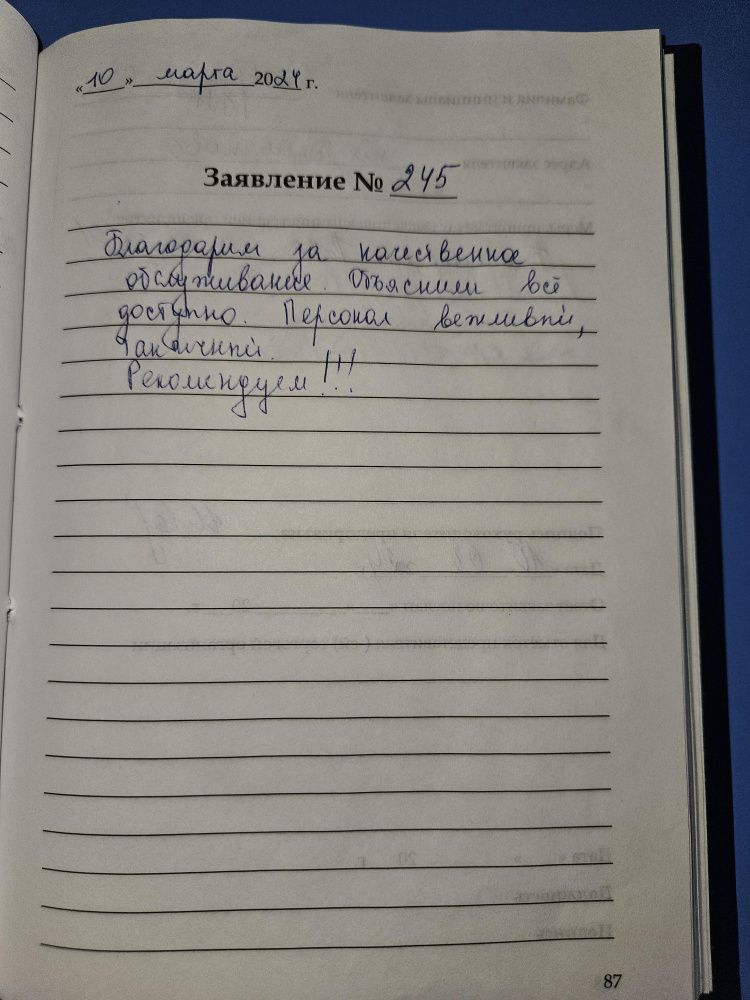 «10» марта 2024 г.
Заявление № 245
Благодарим за качественное
обслуживание. Объяснили всё
доступно. Персонал вежливый,
тактичный.
Рекомендуем!!!
87